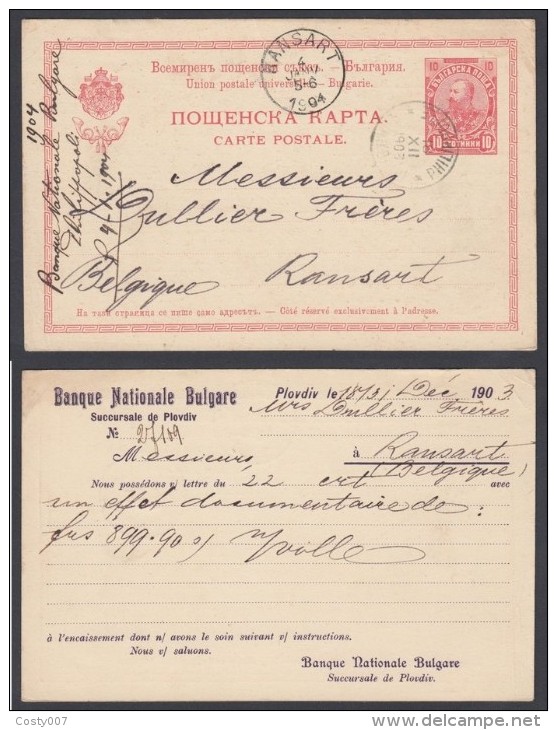 RANSART
4
JANV
5-6
1904
Всемиренъ пощенски съюзъ. — България.
Union postale universelle. — Bulgarie.
ПОЩЕНСКА КАРТА.
CARTE POSTALE.
10 10
БЪЛГАРСКА ПОЩА
10 СТОТИНКИ 10
XII
PHILIPP
1904
Banque Nationale Bulgare
Philippopoli
4-I-1904
Messieurs
Dullier Frères
Belgique Ransart
На тази страница се пише само адресътъ. — Côté réservé exclusivement à l'adresse.
Banque Nationale Bulgare
Succursale de Plovdiv
Plovdiv le 18/31 Déc 1903
№ 27109
Mrs Dullier Frères
à Ransart
(Belgique)
Messieurs,
Nous possédons v/ lettre du 22 crt avec
un effet documentaire de:
frs 899.90 s/
à l'encaissement dont n/ avons le soin suivant v/ instructions.
Nous v/ saluons.
Banque Nationale Bulgare
Succursale de Plovdiv.
Costy007
delcampe.net